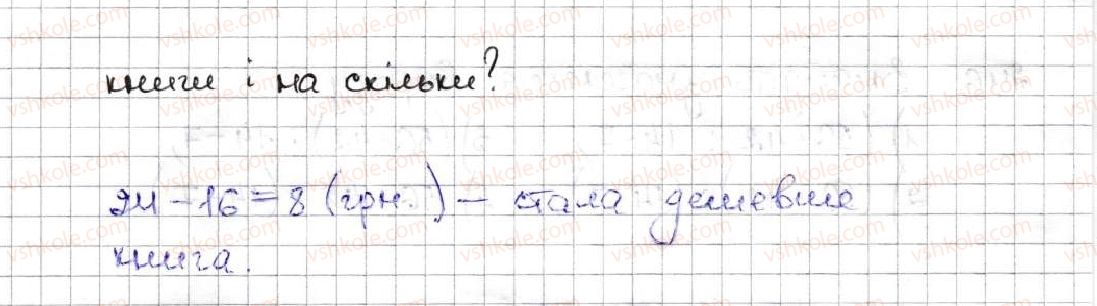 книги і на скільки?
24 - 16 = 8 (грн.) - стала дешевше
книга.